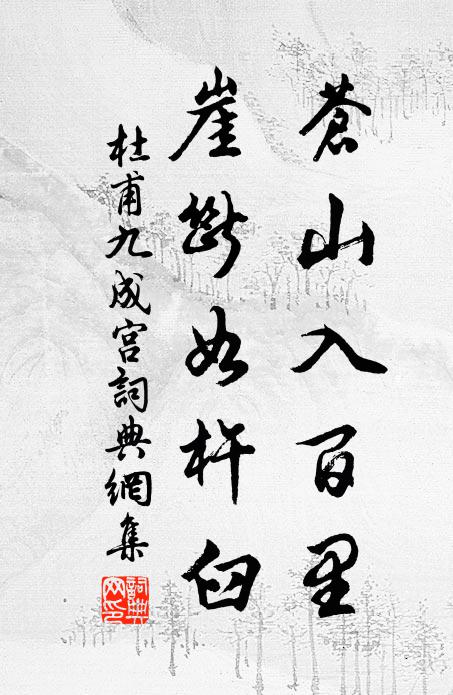 蒼山入百里
崖斷如杵臼
杜甫九成宮詞典網集
詞典網印